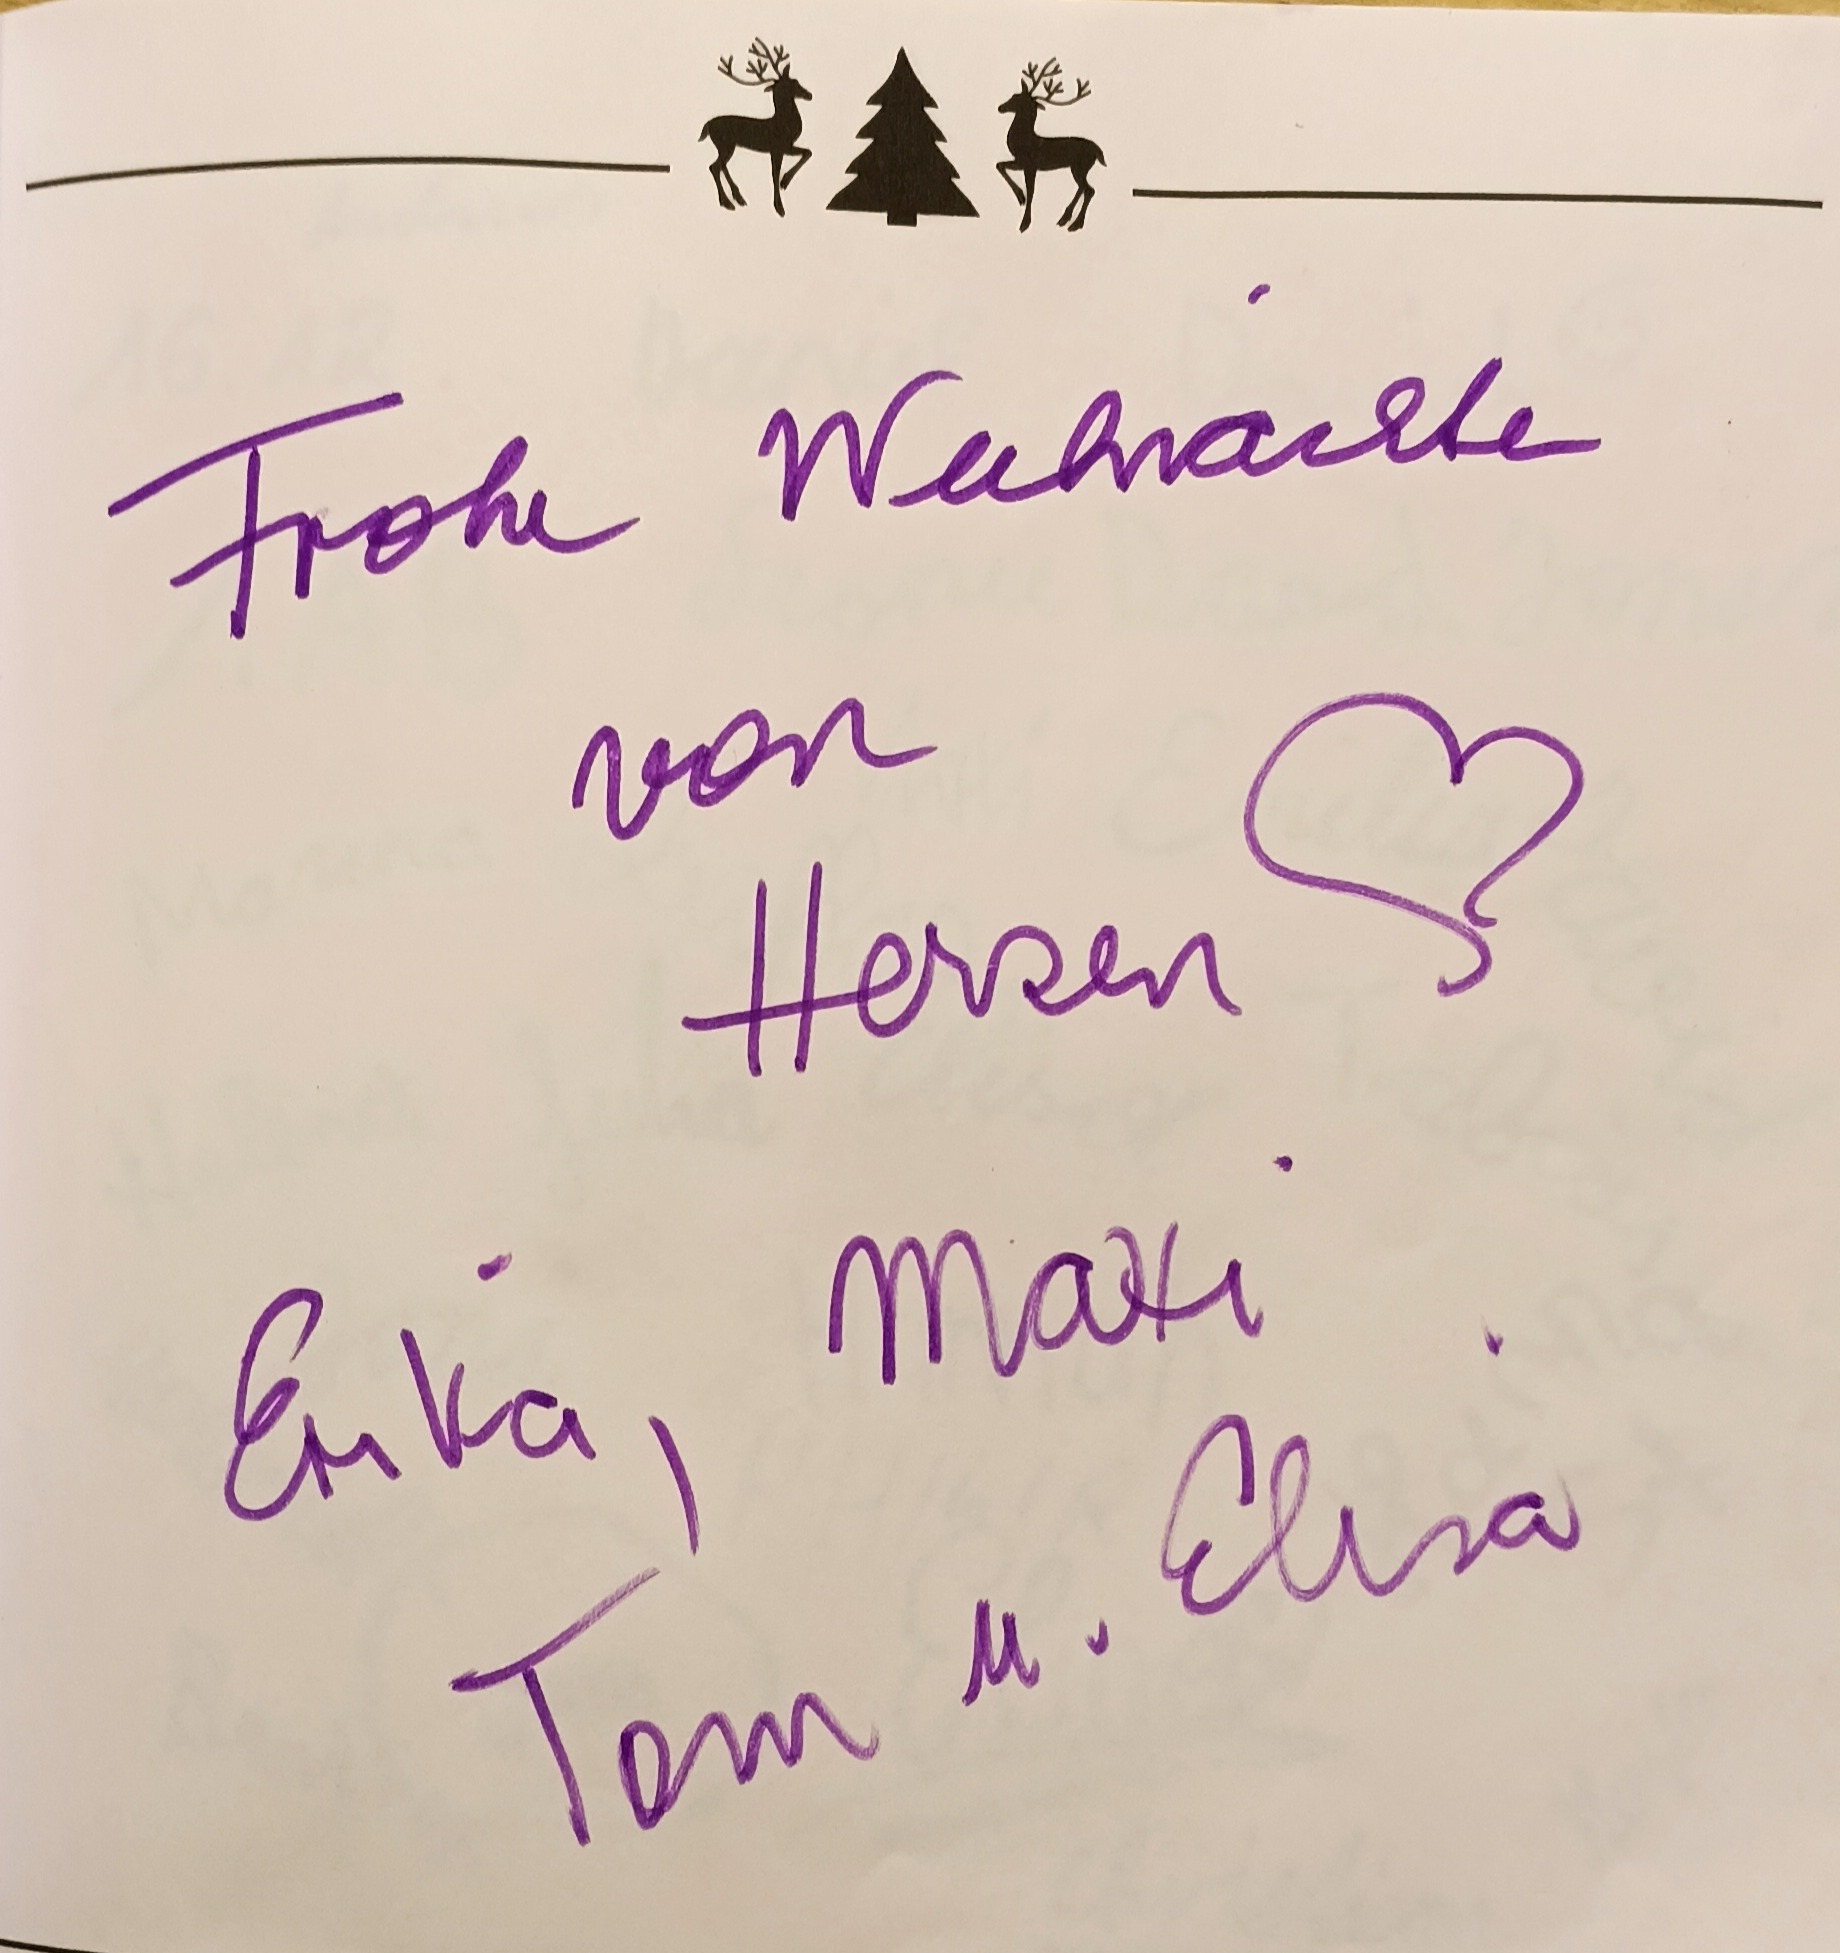 Frohe Weihnachten
von
Herzen
Erika, Maxi
Tom u. Elisa